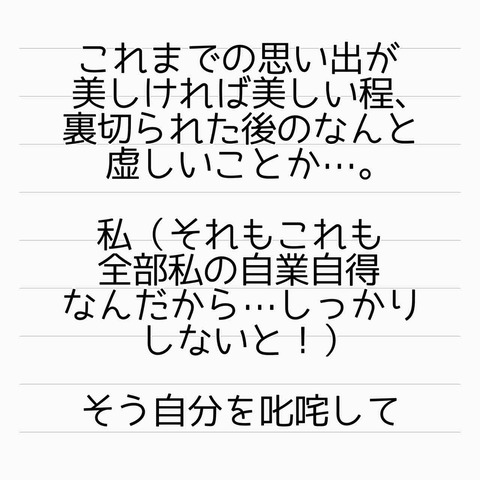 これまでの思い出が
美しければ美しい程、
裏切られた後のなんと
虚しいことか…。
私（それもこれも
全部私の自業自得
なんだから…しっかり
しないと！）
そう自分を叱咤して